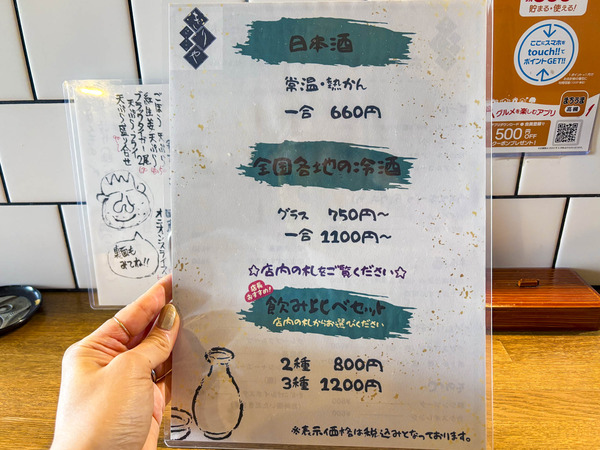 日本酒
常温・熱かん
一合 660円
全国各地の冷酒
グラス 750円~
一合 1100円~
☆店内の札をご覧ください☆
店長おすすめ!
飲み比べセット
店内の札からお選びください
2種 800円
3種 1200円
※表示価格は税込みとなっております。
天ぷら盛り合せ
オニオンスライス
裏面も
みてね!!
貯まる・使える!
ここにスマホを
touch!!で
ポイントGET!!
グルメを楽しむアプリ
500円
OFF
クーポンプレゼント!